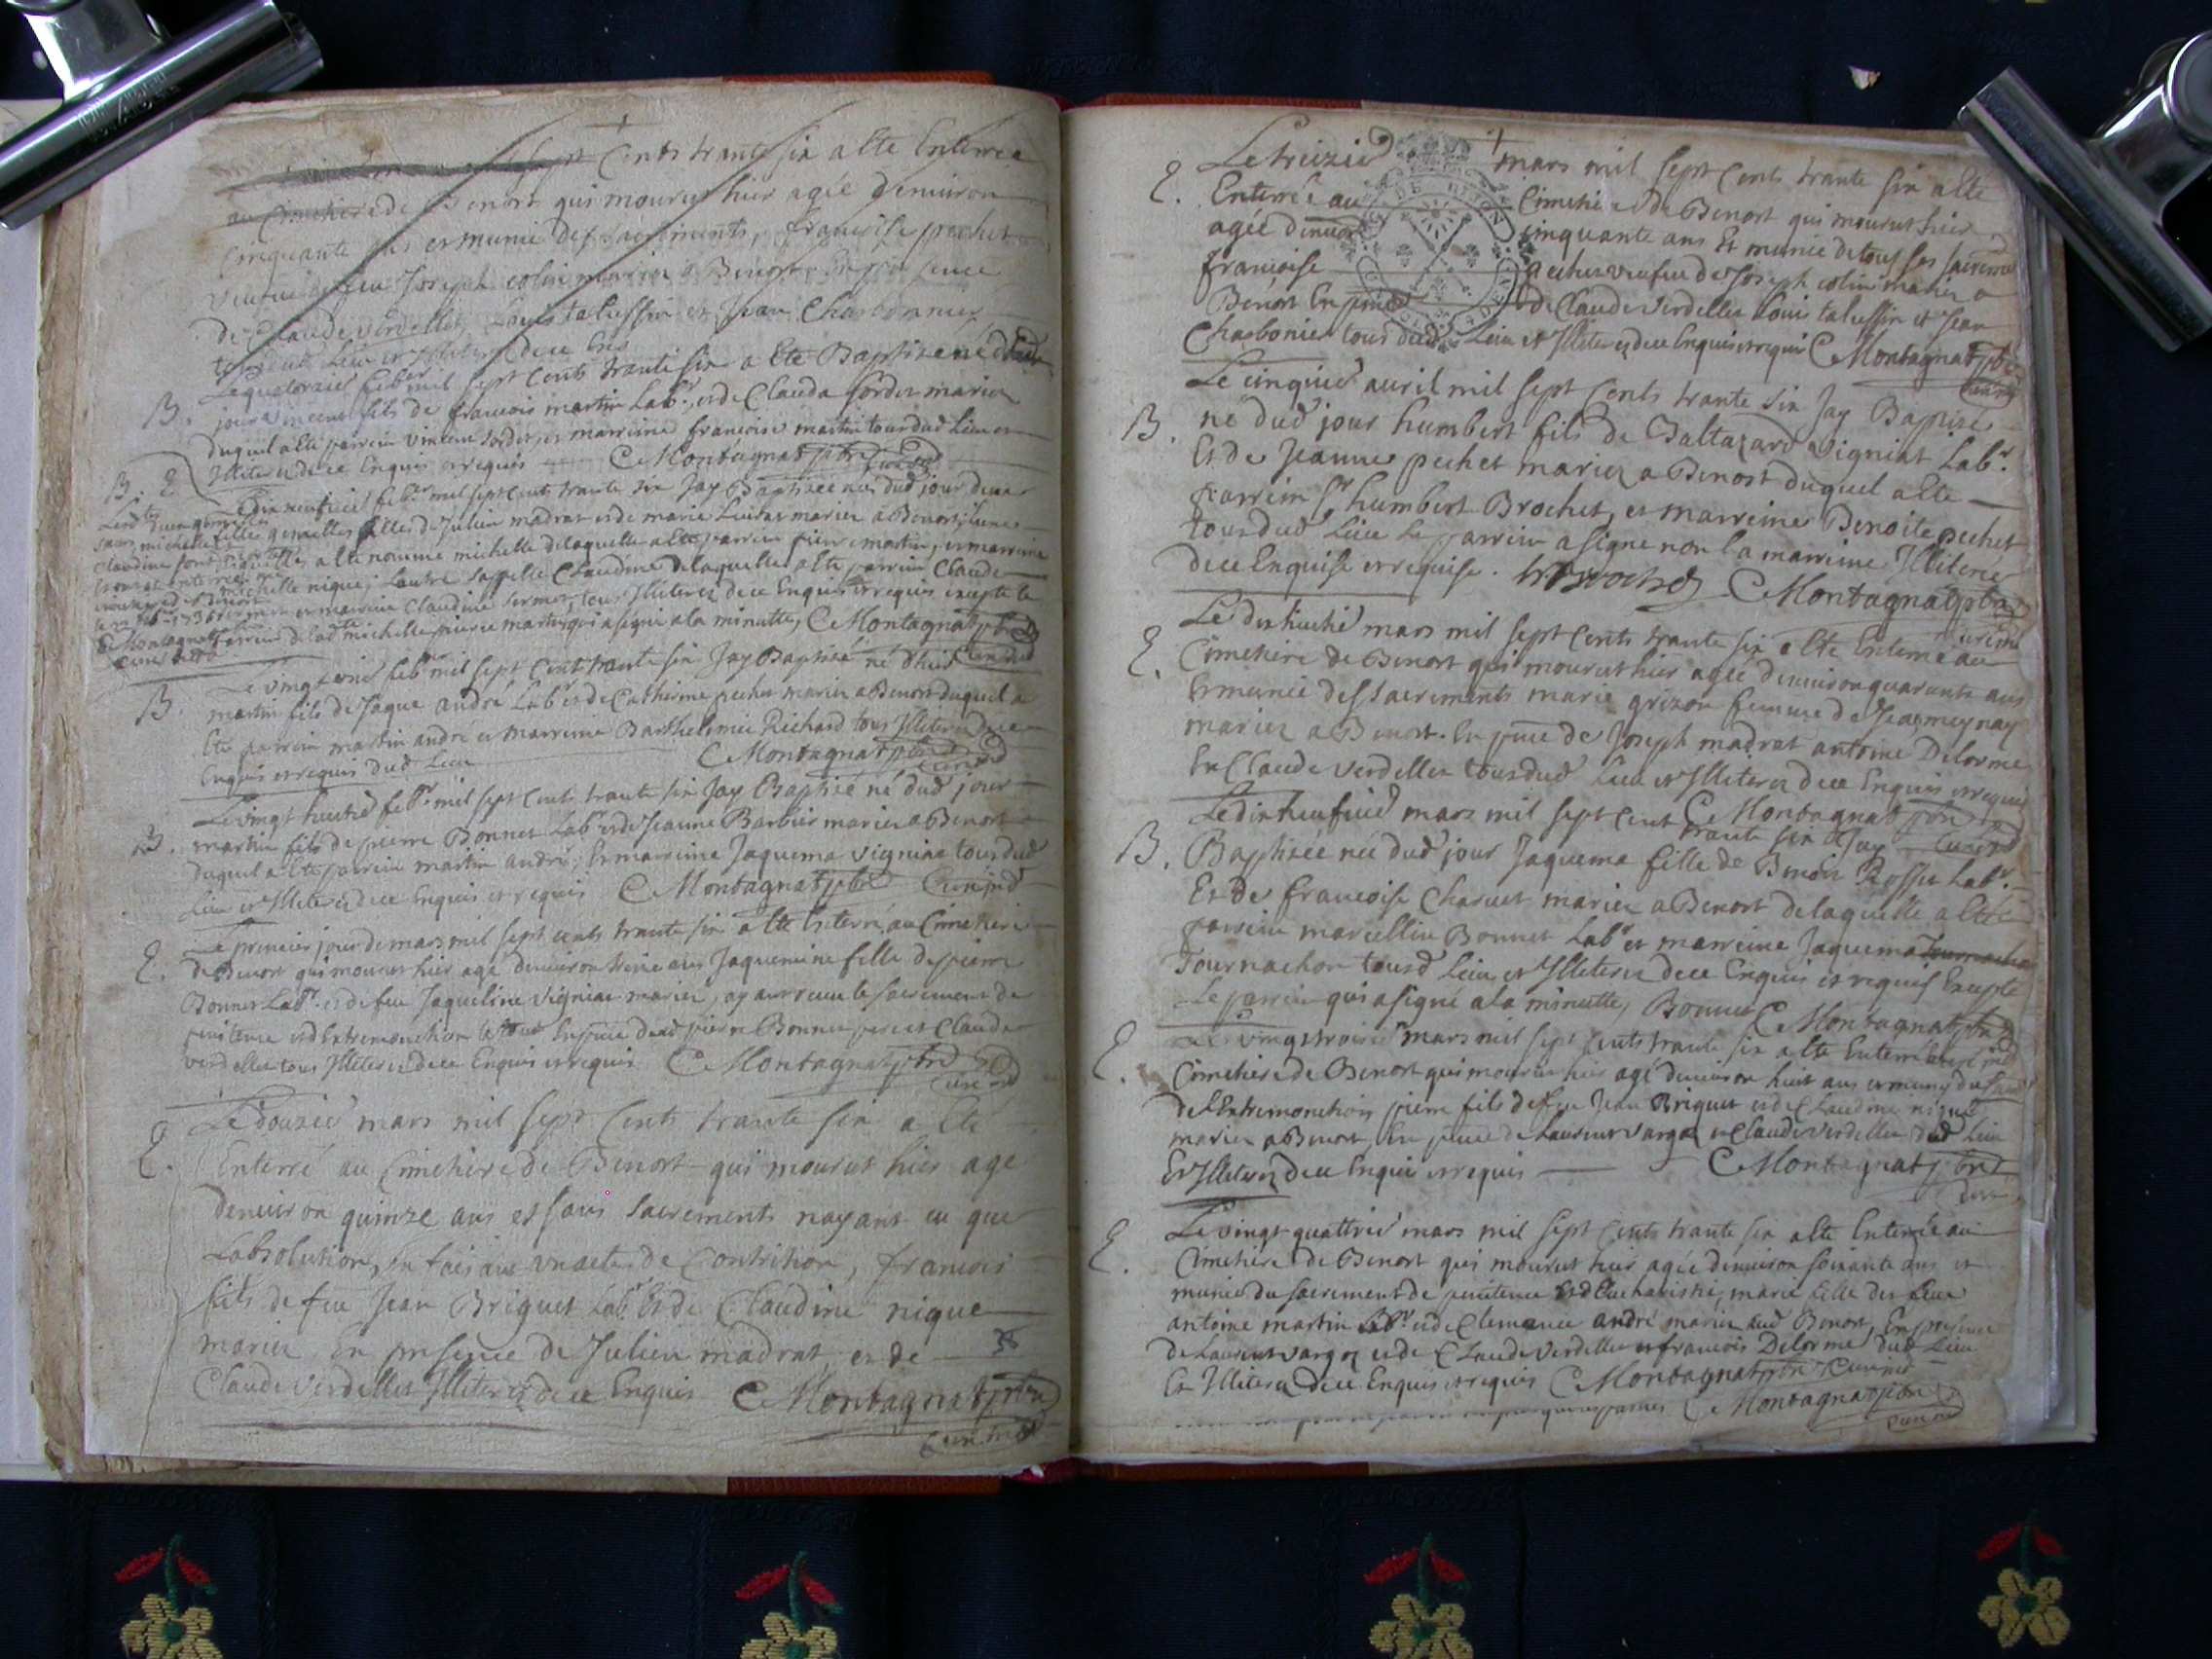 Cents trante six a este Enterrée
au Cimetiere de Benost qui mourut hier agée d'enuiron
Cinquante ans et munie des sacrements, francoise pechet
veuue de feu Joseph colin mariez a Benost, En presence
de Claude verdellet, Louis talussin et Jean Charbonnier
tous dud. Lieu et Illiterez de ce Enquis
Le quatorzie feber mil sept cents trante six a este Baptisé né dhier
B. jour vincent fils de francois martin Labr. et de Clauda sordet mariez
duquel a esté parrein vincent sordet, et marreine francoise martin tous dud Lieu et
Illiterez de ce Enquis et requis C Montagnat ptre Curé sd
B. E. Le dix neufuie febr mil sept cents trante six Jay Baptisée née dud jour deux
filles gemelles filles de Julien madrat et de marie Luitar mariez a Benost, lune
a esté nommé michelle delaquelle a esté parrein pierre martin, et marreine
michelle nique; Lautre sappelle Claudine delaquelle a esté parrein Claude
et marreine Claudine sermet, tous Illiterez de ce Enquis et requis excepté le
parrein de lad. michelle pierre martin qui a signé a la minutte, C Montagnat ptre
Curé sd
Le vingt unie febr mil sept Cent trante six Jay Baptisé né dhier
B. martin fils de Jaque andré Labr et de Catherine pechet mariez a Benost duquel a
esté parrein martin andré et marreine Barthelemie Richard tous Illiterez de ce
Enquis et requis dud Lieu C Montagnat ptre
Curé sd
Le vingt huitie febr. mil sept Cents trante six Jay Baptisé né dud jour
B. martin fils de pierre Bonnet Labr et de Jeanne Barbier mariez a Benost
duquel a esté parrein martin andré, Et marreine Jaquema vigniat tous dud
Lieu et Illiterez de ce Enquis et requis C Montagnat ptre Curé sd
Le premier jour de mars mil sept cents trante six a esté Enterré au Cimetiere
E. de Benost qui mourut hier agé denuiron treize ans Jaquemine fille de pierre
Bonnet Labr. et de feu Jaqueline vigniat mariez, ayant receu le sacrement de
penitence et d Extremonction Le tout En pnce dud pierre Bonnet pere et Claude
verdellet tous Illiterez de ce Enquis et requis C Montagnat ptre
Curé sd
Le douzie mars mil sept Cents trante six a este
E. Enterré au Cimetiere de Benost qui mourut hier agé
denuiron quinze ans et sans sacrements nayant eu que
Labsolution, En faisant un acte de Contrition, francois
fils de feu Jean Briquet Labr Et de Claudine nique
mariez En presence de Julien madrat et de
Claude verdellet Illiterez de ce Enquis C Montagnat ptre
Curé sd
Le treizie mars mil sept Cents trante six a esté
E. Enterrée au Cimetiere de Benost qui mourut hier
agée denuiron cinquante ans Et munie de tous ses sacrements
francoise pechet veufue de Joseph colin mariez a
Benost En pnce de Claude verdellet Louis talussin et Jean
Charbonier tous dud Lieu et Illiterez de ce Enquis et requis C Montagnat ptre
Curé sd
Le cinquie auril mil sept Cents trante six Jay Baptisé
B. né dud jour humbert fils de Baltazard vigniat Labr.
Et de Jeanne pechet mariez a Benost duquel a esté
parrein sr humbert Brochet, et marreine Benoite pechet
tous dud Lieu Le parrein a signé non la marreine Illiteree
de ce Enquise et requise. h Brochet C Montagnat ptre
Curé sd
Le dixhuitie mars mil sept Cents trante six a esté Enterrée au
E. Cimetiere de Benost qui mourut hier agée denuiron quarante ans
Et munie des sacrements marie grizon femme de Jean meynay
mariez a Benost. En pnce de Joseph madrat antoine Delorme
Et Claude verdellet tous dud Lieu et Illiterez de ce Enquis et requis
C Montagnat ptre
Curé sd
Le dix neufuie mars mil sept Cent trante six Jay
B. Baptisée née dud jour Jaquema fille de Benoit Rosset Labr.
Et de francoise Charuet mariez a Benost delaquelle a esté
parrein marcellin Bonnet Labr et marreine Jaquema
Tournachon tousd Lieu et Illiterez de ce Enquis et requis Excepté
Le parrein qui a signé a la minutte, Bonnet C Montagnat ptre
Curé sd
Le vingt troisie mars mil sept Cents trante six a esté Enterré au
E. Cimetiere de Benost qui mourut hier agé denuiron huit ans et muny du sacr
de l Extremonction pierre fils de feu Jean Briquet et de Claudine nique
mariez a Benost En pnce de Laurent vargoz et Claude verdellet dud Lieu
Et Illiterez de ce Enquis et requis C Montagnat ptre
Curé
Le vingt quattrie mars mil sept Cents trante six a esté Enterrée au
E. Cimetiere de Benost qui mourut hier agée denuiron soixante ans et
munie du sacrement de penitence Et d Eucharistie, marie fille des feux
antoine martin Labr. et de Clemence andré mariez aud Benost, En presence
de Laurent vargoz et de Claude verdellet et francois Delorme dud Lieu
Et Illiterez de ce Enquis et requis C Montagnat ptre Curé sd
C Montagnat ptre
Curé sd